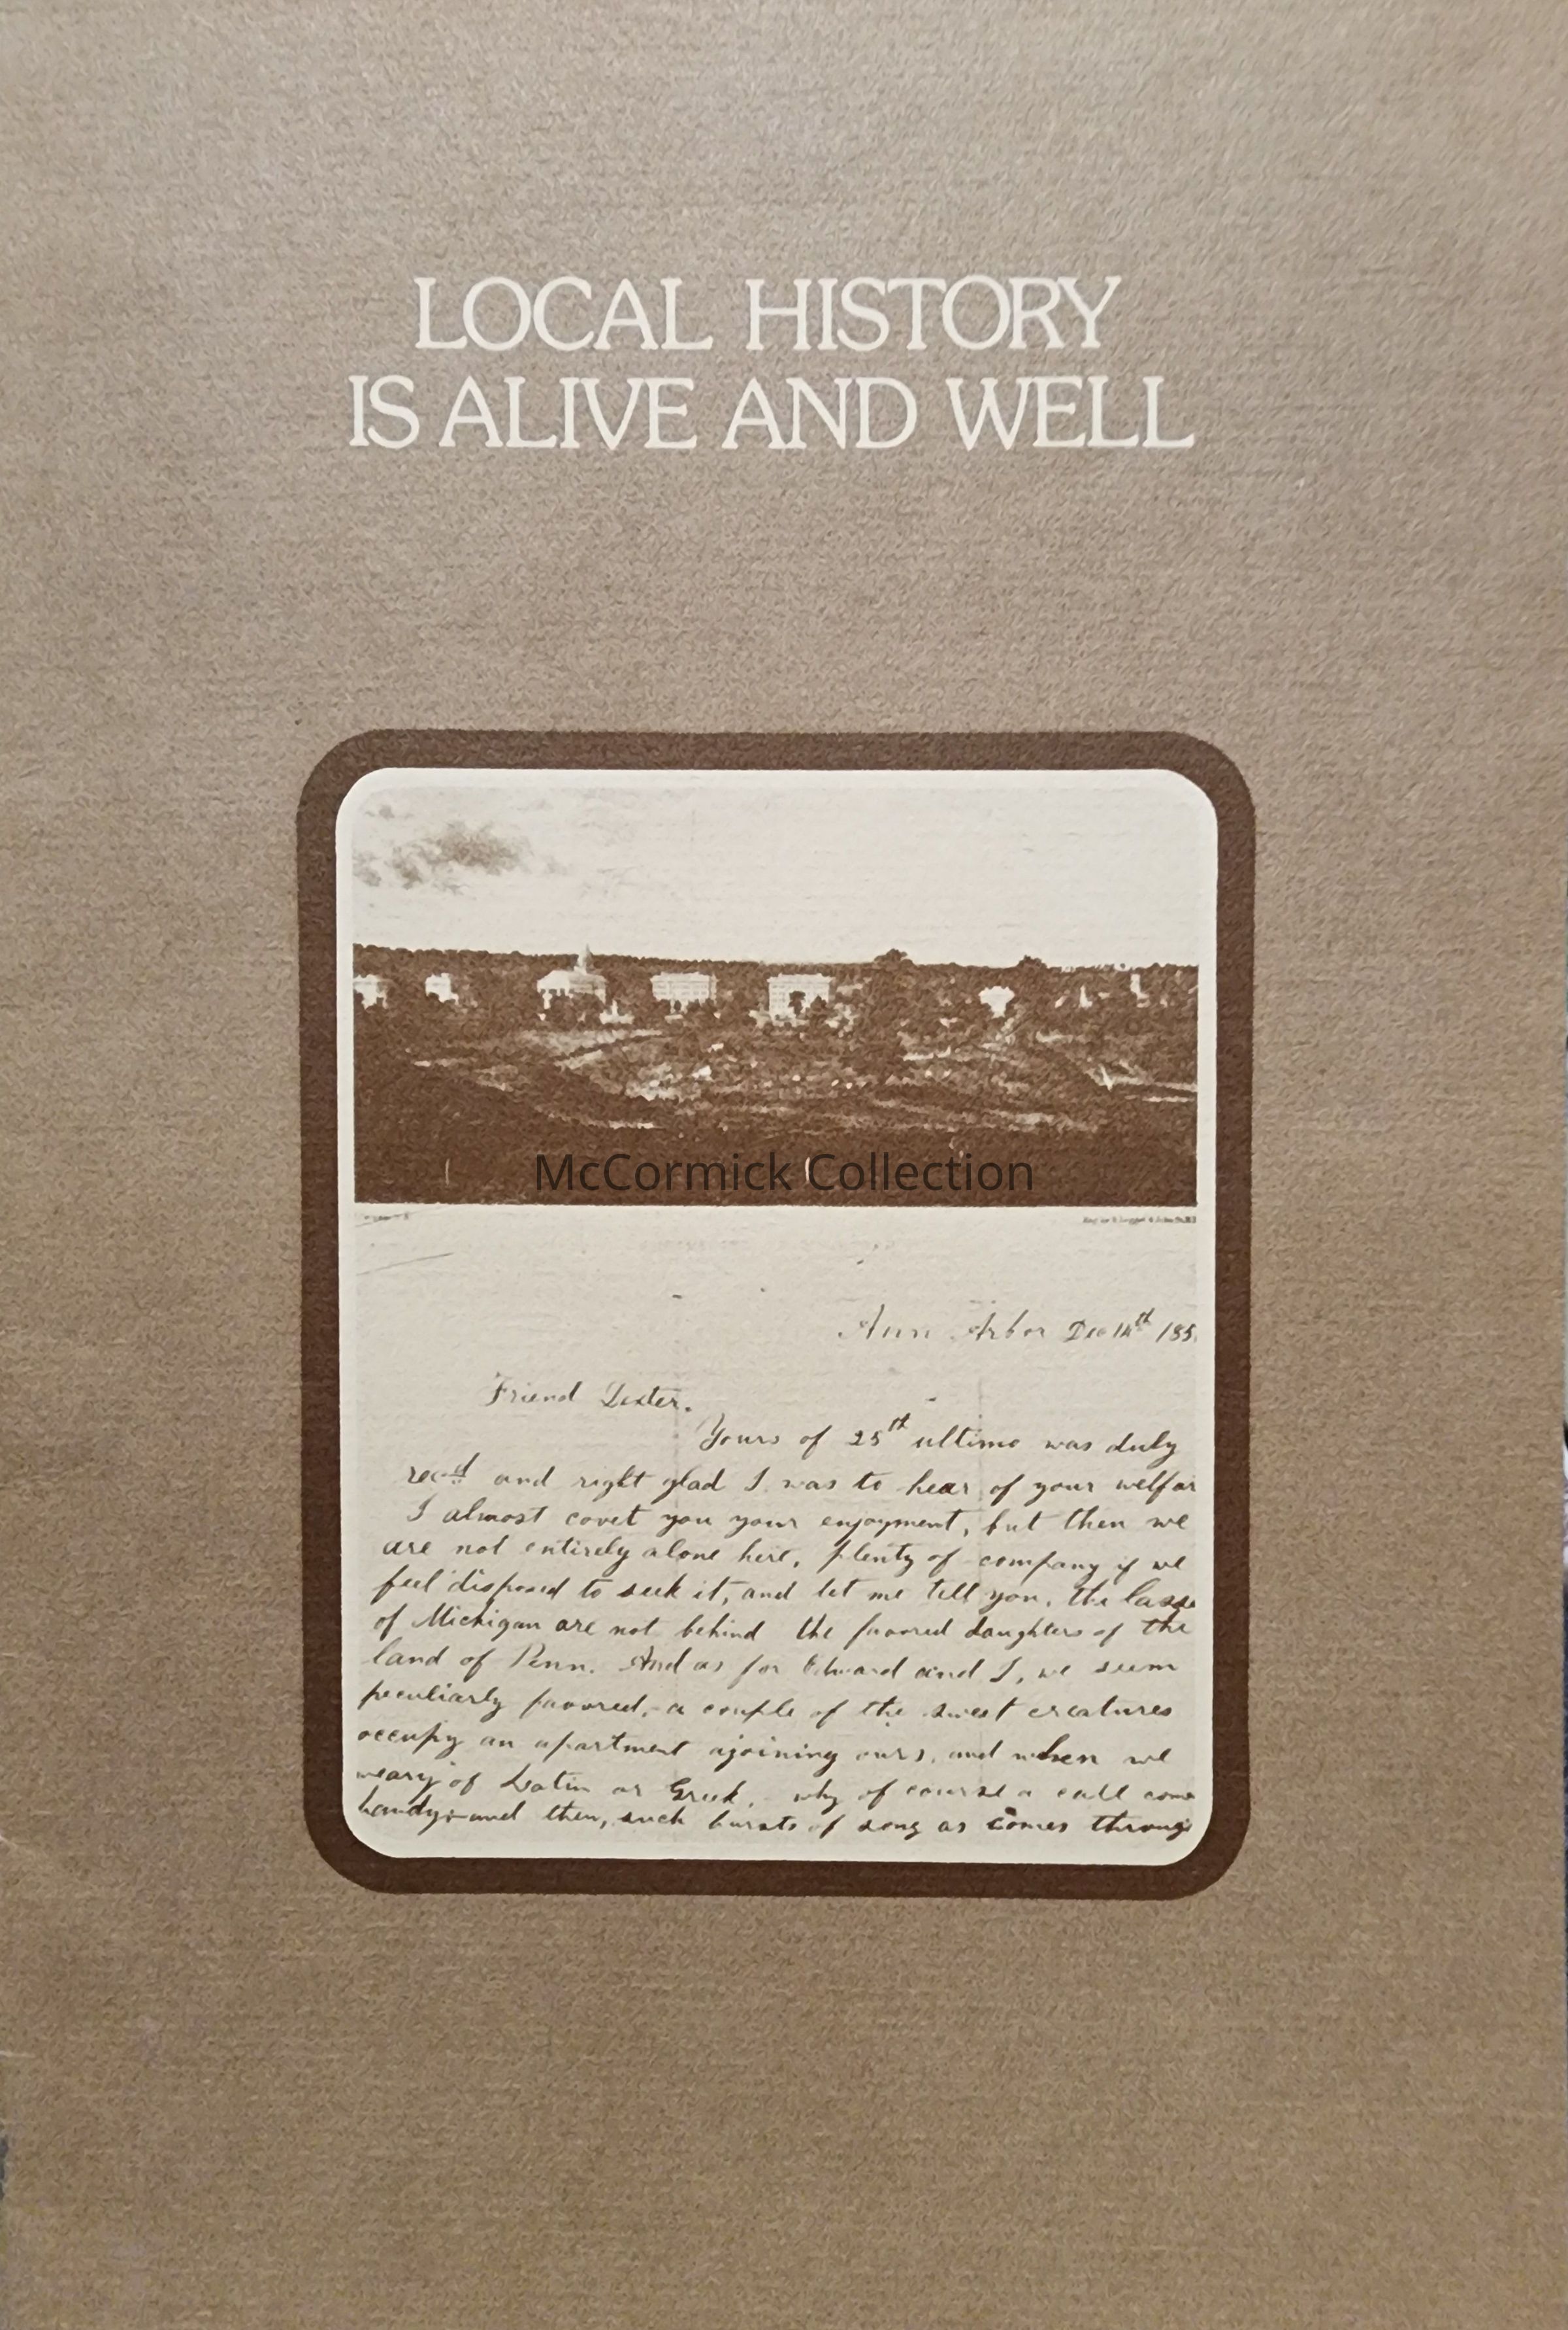 LOCAL HISTORY
IS ALIVE AND WELL
McCormick Collection
Ann Arbor Dec 14th 185
Friend Dexter.
Yours of 25th ultimo was duly
recd and right glad I was to hear of your welfar
I almost covet you your enjoyment, but then we
are not entirely alone here, plenty of company if we
feel disposed to seek it, and let me tell you, the lasse
of Michigan are not behind the favored daughters of the
land of Penn. And as for Edward and I, we seem
peculiarly favored, a couple of the swest creatures
occupy an apartment ajoining ours, and when we
weary of Latin or Greek, why of course a call come
handy; and then, such bursts of song as comes throug